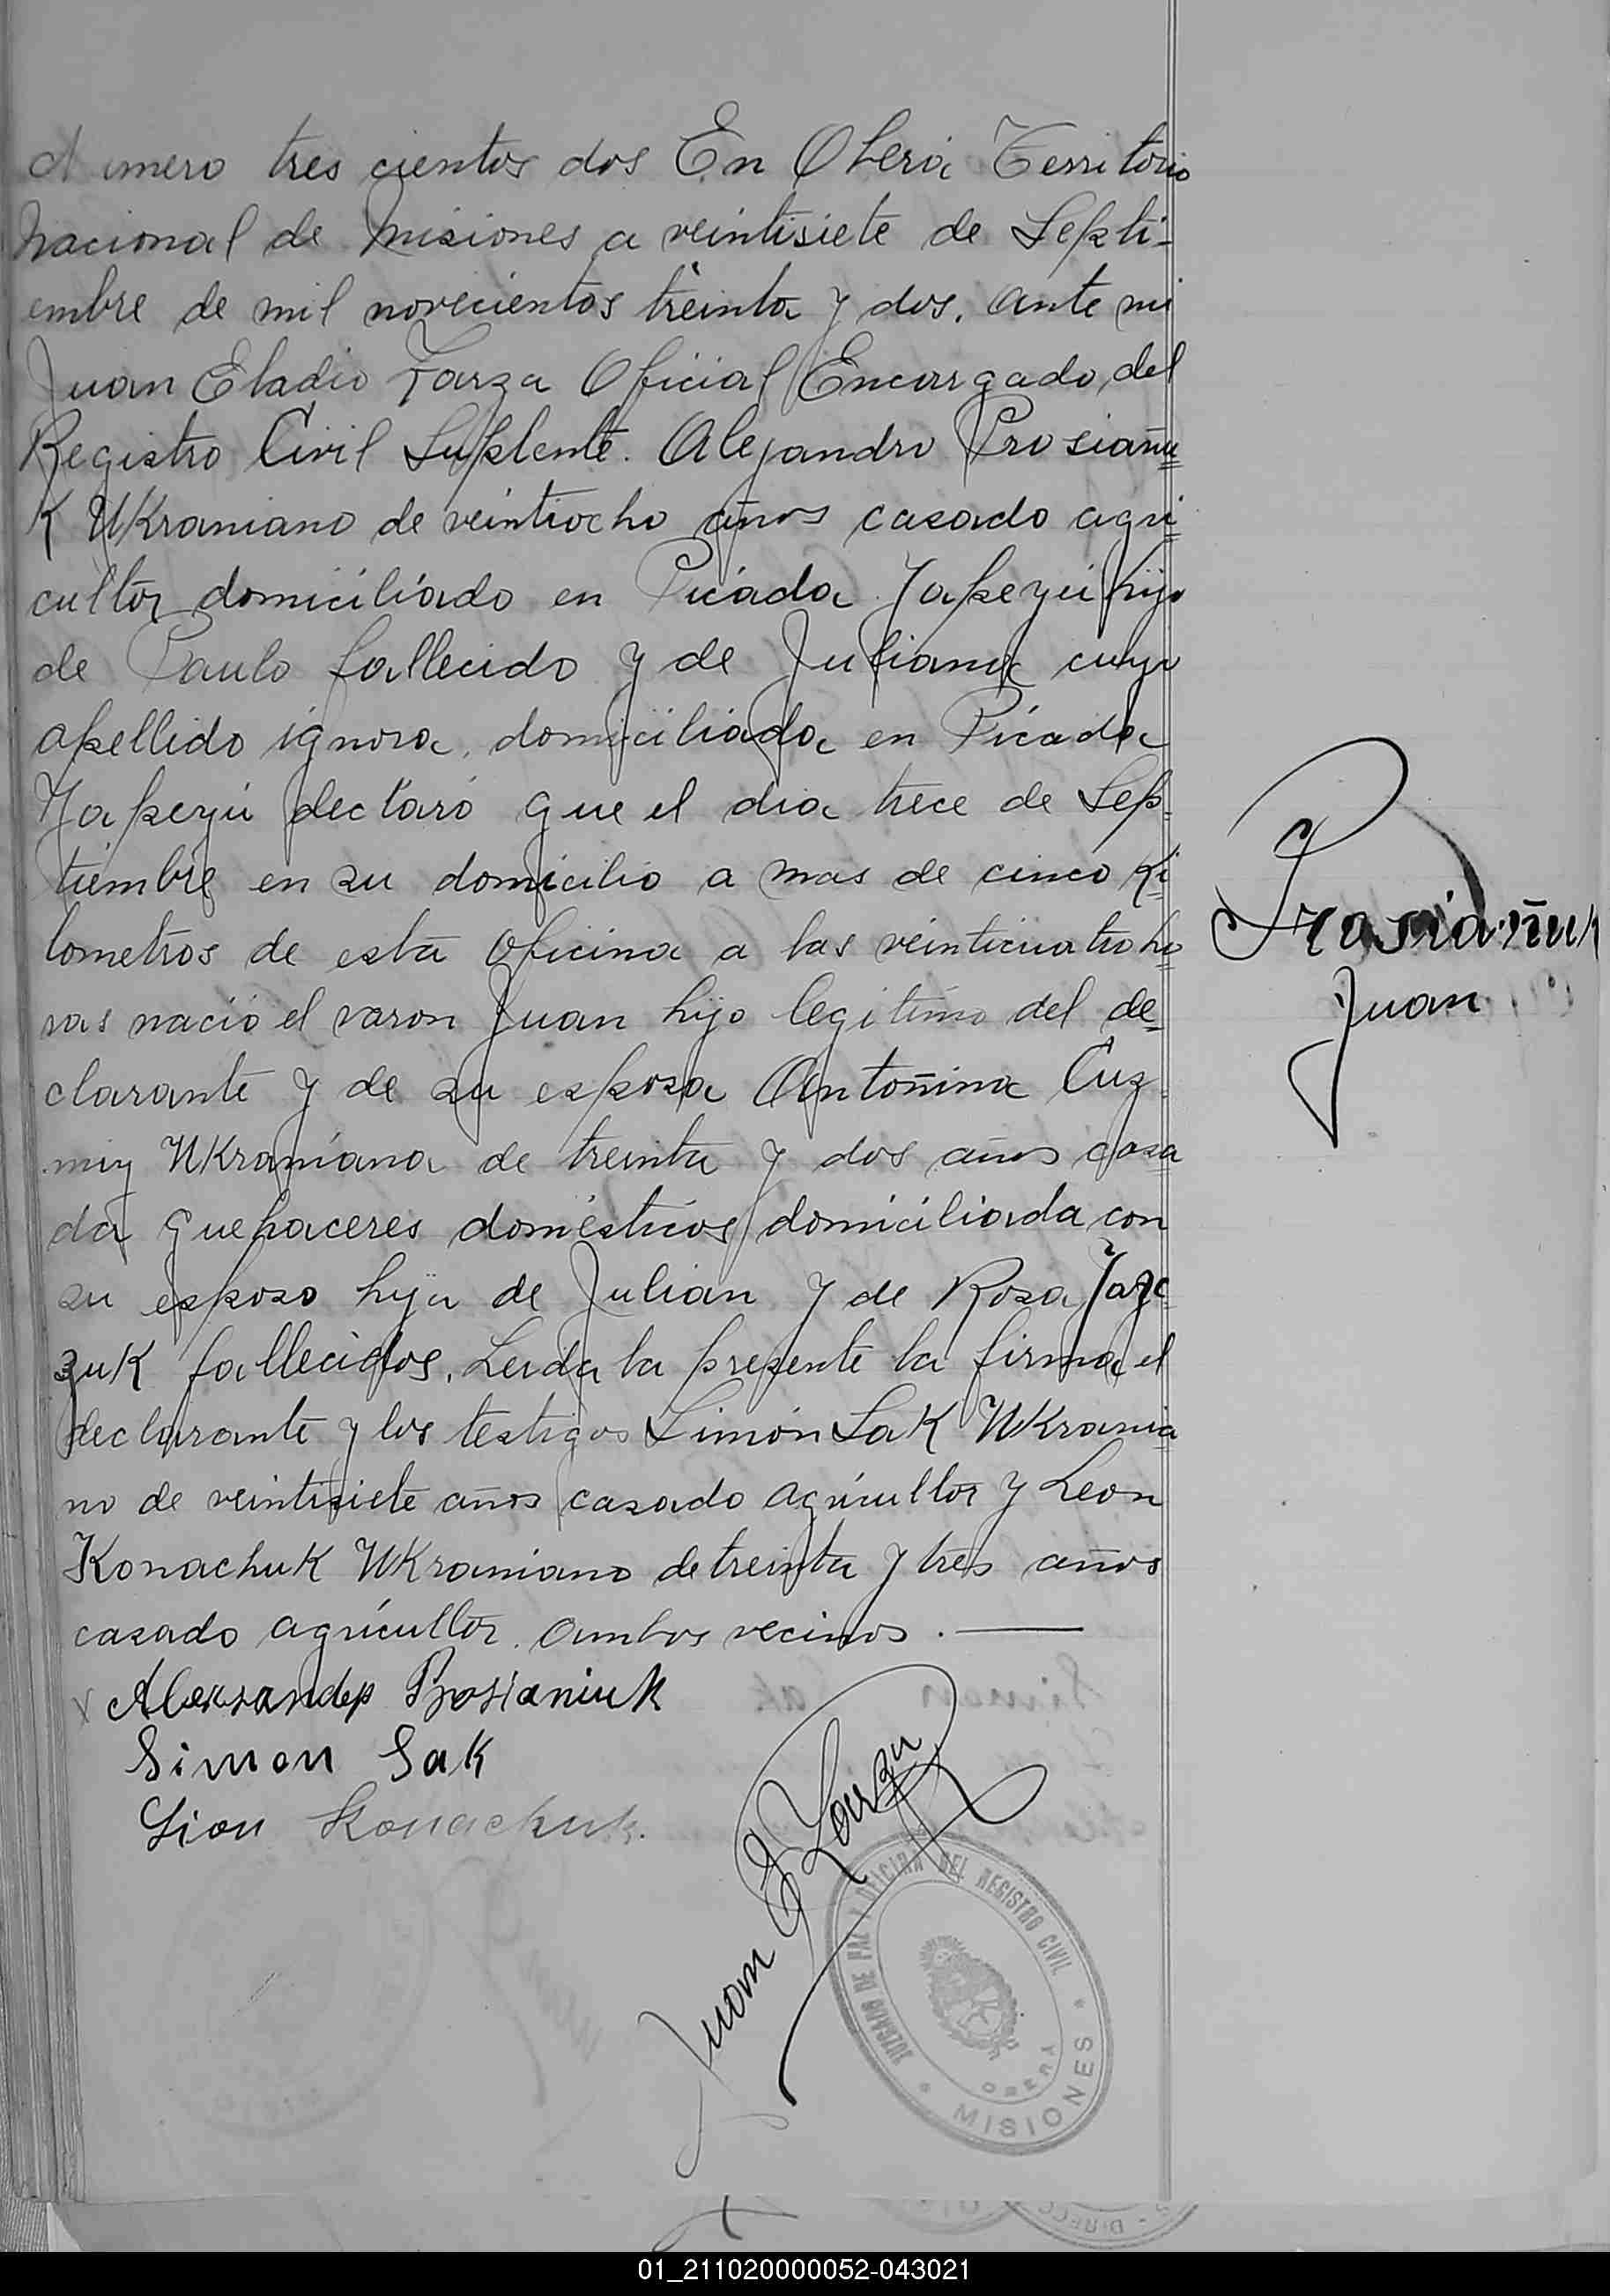 Numero tres cientos dos En Oberá Territorio
Nacional de Misiones a veintisiete de Septi-
embre de mil novecientos treinta y dos. ante mi
Juan Eladio Zarza Oficial Encargado del
Registro Civil Suplente. Alejandro Prosiañu
K UKraniano de veintiocho años casado agri
cultor domiciliado en Picada Yapeyú hijo
de Paulo fallecido y de Juliana cuyo
apellido ignora, domiciliada en Picada
Yapeyú declaró que el dia trece de Sep-
tiembre en su domicilio a mas de cinco Ki
lometros de esta Oficina a las veinticuatro ho
ras nació el varon Juan hijo legitimo del de-
clarante y de su esposa Antoñina Cuz
miz UKraniana de treinta y dos años casa
da quehaceres domésticos domiciliada con
su esposo hija de Julian y de Rosa Jaze
zuK fallecidos. Leida la presente la firma el
declarante y los testigos Simón SaK UKrania
no de veintisiete años casado agricultor y Leon
KonachuK UKraniano de treinta y tres años
casado agricultor. ambos vecinos.
x Aleksander Prosianiuk
Simon Sak
Lion Konachuk.
Juan E Zarza
JUZGADO DE PAZ Y OFICINA DEL REGISTRO CIVIL
OBERA
MISIONES
Prosiañuk
Juan
01_211020000052-043021